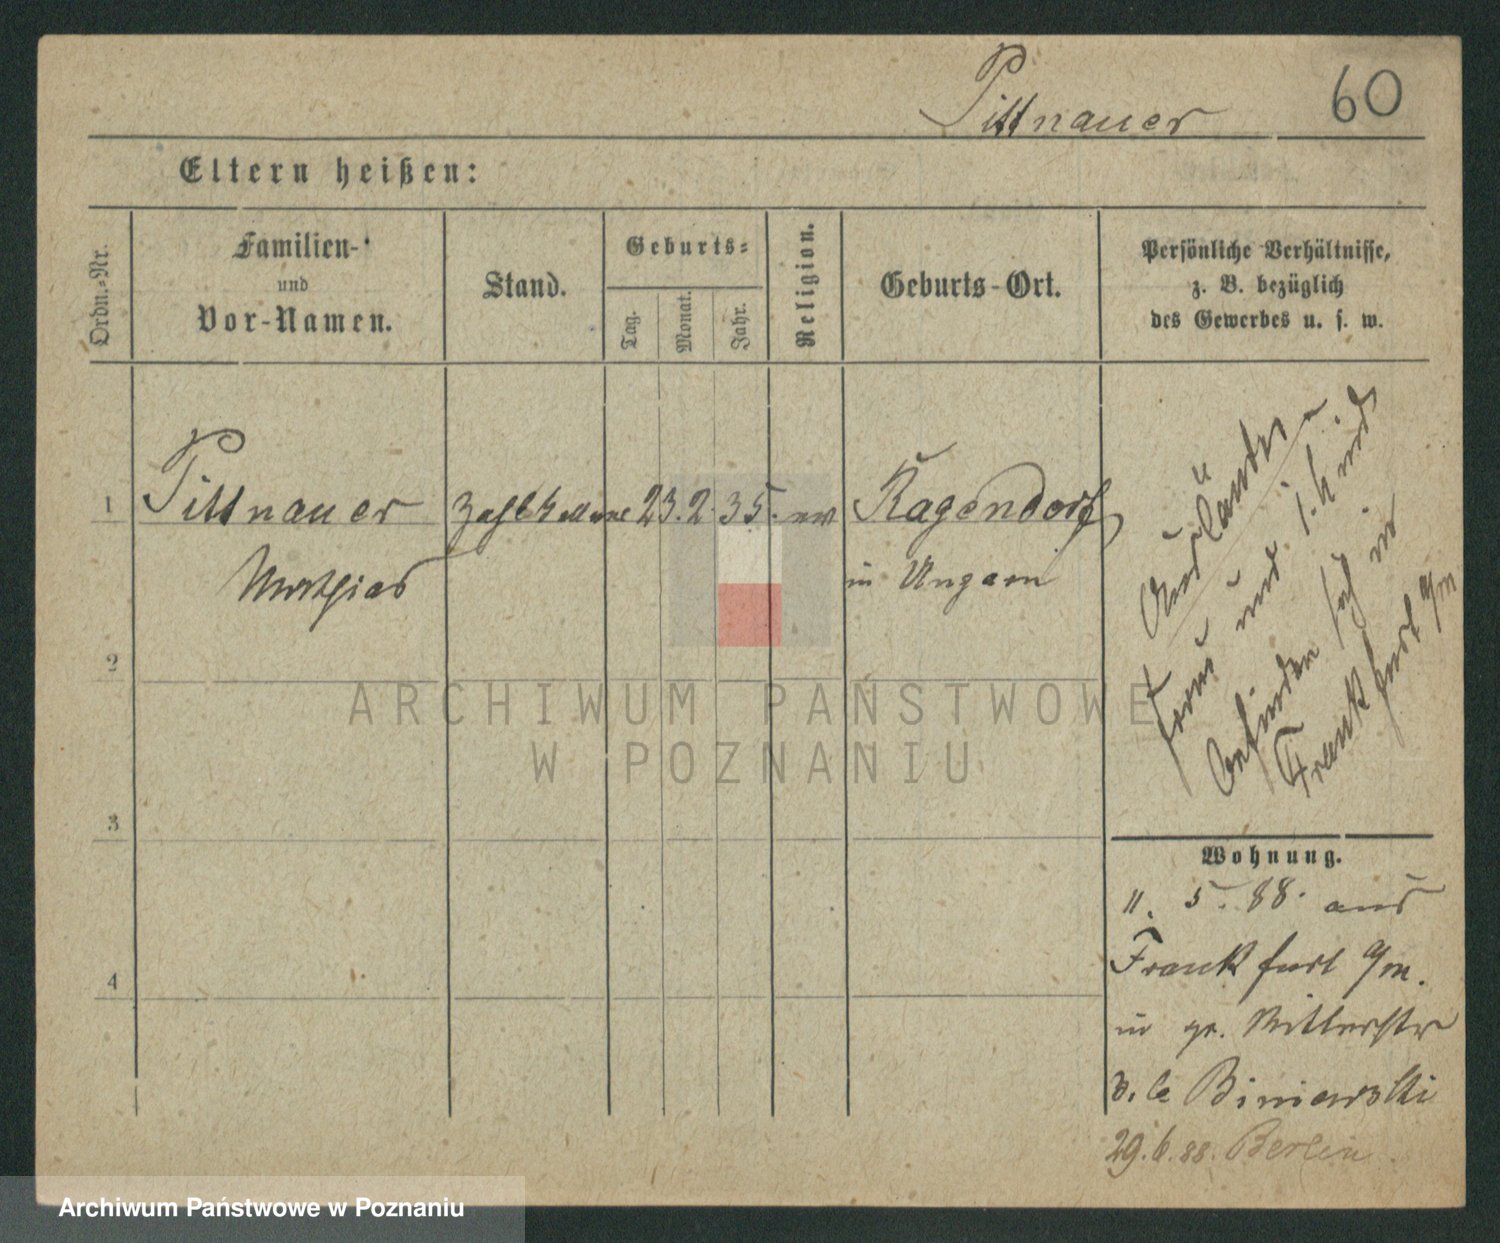 Pittnauer
60
Eltern heißen:
Ordn.-Nr.
Familien-
und
Vor-Namen.
Stand.
Geburts-
Tag.
Monat.
Jahr.
Religion.
Geburts-Ort.
Persönliche Verhältnisse,
z. B. bezüglich
des Gewerbes u. s. w.
1
Pittnauer
Mathias
Zahlkellner
23. 2. 35.
ev
Ragendorf
in Ungarn
Ausländer
Frau und 1 Kind
befinden sich in
Frankfurt a/M
2
3
4
Wohnung.
11. 5. 88. aus
Frankfurt a/M.
in gr. Ritterstr
b. Biniarski
29. 6. 88. Berlin
ARCHIWUM PAŃSTWOWE
W POZNANIU
Archiwum Państwowe w Poznaniu